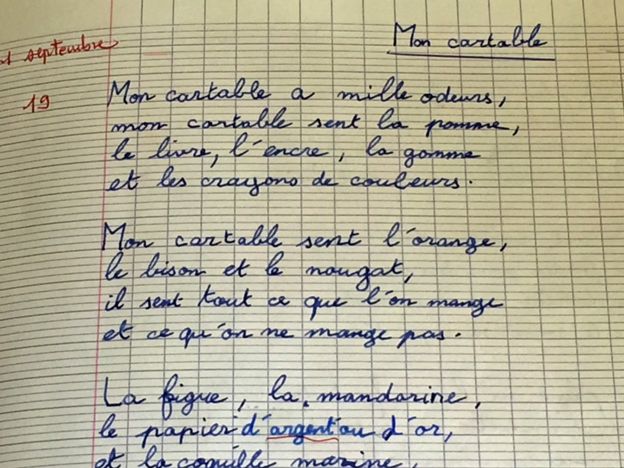 Mon cartable
septembre
19
Mon cartable a mille odeurs,
mon cartable sent la pomme,
le livre, l'encre, la gomme
et les crayons de couleurs.
Mon cartable sent l'orange,
le bison et le nougat,
il sent tout ce que l'on mange
et ce qu'on ne mange pas.
La figue, la mandarine,
le papier d'argent ou d'or,
et la coquille marine,